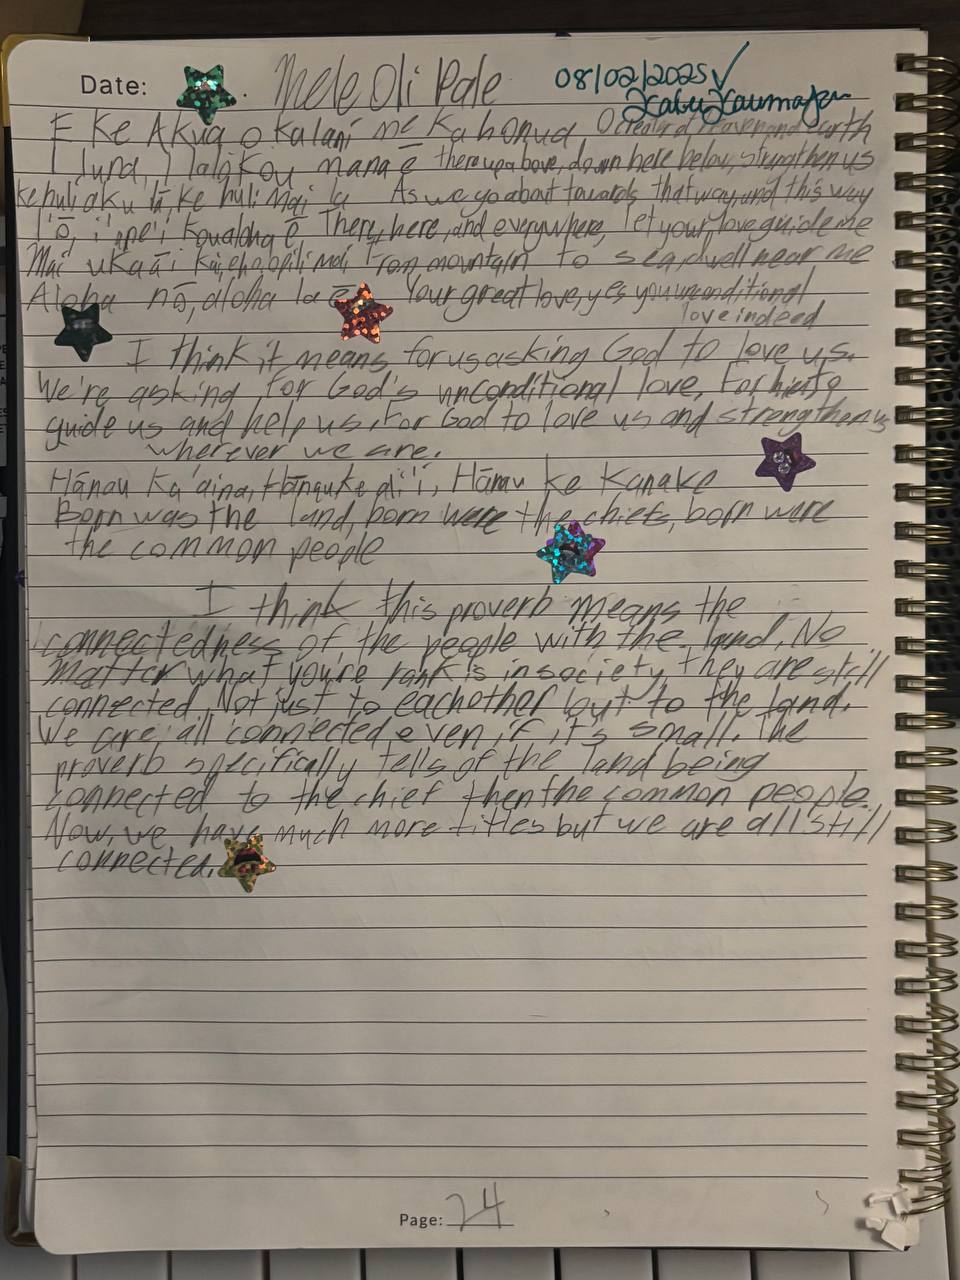 Date: Mele Oli Pale 08/02/2025 ✓
E Ke Akua o Ka lani me Ka honua O creator of Heaven and earth
I luna, I lalo kou mana ē there up above, down here below, strengthen us
ke huli aku lā, ke huli mai la As we go about towards that way, and this way
I 'ō, i 'ane'i Kou aloha ē There, here, and everywhere, let your love guide me
Mai uka ā i kai, e ho'opili mai From mountain to sea, dwell near me
Aloha nō, aloha la ē Your great love, yes you unconditional
love indeed
I think it means for us asking God to love us.
We're asking for God's unconditional love. For him to
guide us and help us. For God to love us and strengthen us
wherever we are.
Hānau Ka 'aina, Hānau ke ali'i, Hānau ke Kanaka
Born was the land, born were the chiefs, born were
the common people
I think this proverb means the
connectedness of the people with the land. No
matter what you're rank is in society, they are still
connected. Not just to eachother but to the land.
We are all connected even if it's small. The
proverb specifically tells of the land being
connected to the chief then the common people.
Now, we have much more titles but we are all still
connected.
Page: 24